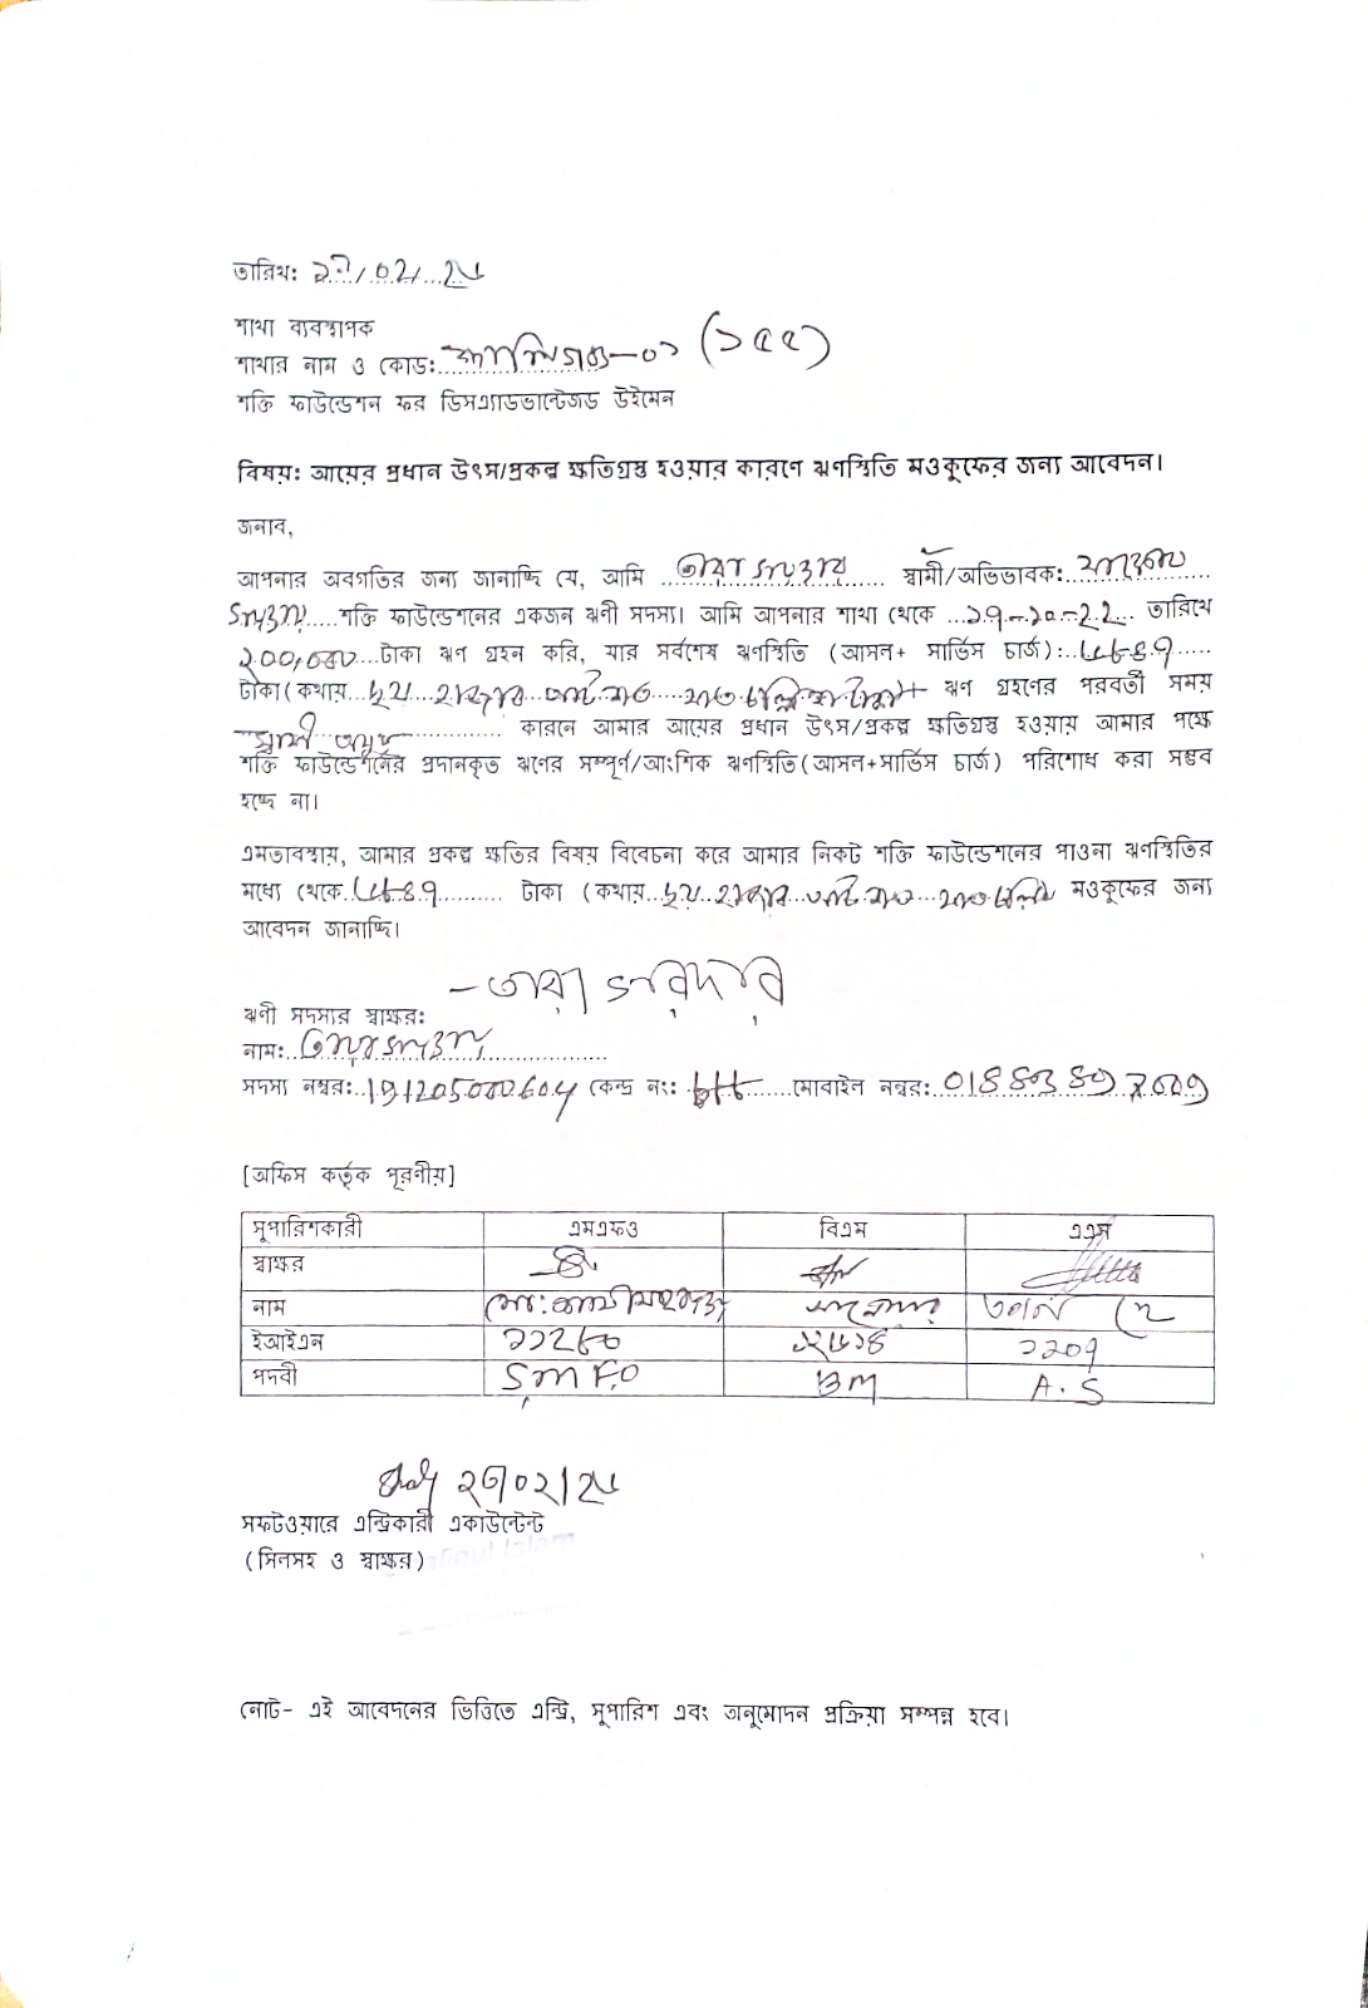 তারিখঃ ..../০২/..২৫
শাখা ব্যবস্থাপক
শাখার নাম ও কোড: কালিগঞ্জ-০১ (১৫৫)
শক্তি ফাউন্ডেশন ফর ডিসএ্যাডভান্টেজড উইমেন
বিষয়: আয়ের প্রধান উৎস/প্রকল্প ক্ষতিগ্রস্ত হওয়ার কারণে ঋণস্থিতি মওকুফের জন্য আবেদন।
জনাব,
আপনার অবগতির জন্য জানাচ্ছি যে, আমি তারা সরদার স্বামী/অভিভাবক:
সরদার শক্তি ফাউন্ডেশনের একজন ঋণী সদস্য। আমি আপনার শাখা থেকে ১৭-১০-২২ তারিখে
২০০,০০০ টাকা ঋণ গ্রহন করি, যার সর্বশেষ ঋণস্থিতি (আসল+ সার্ভিস চার্জ): ৬৮৪৭
টাকা (কথায় ছয় হাজার আট শত সাত চল্লিশ টাকা) ঋণ গ্রহণের পরবর্তী সময়
স্বামী অসুস্থ কারনে আমার আয়ের প্রধান উৎস/প্রকল্প ক্ষতিগ্রস্ত হওয়ায় আমার পক্ষে
শক্তি ফাউন্ডেশনের প্রদানকৃত ঋণের সম্পূর্ণ/আংশিক ঋণস্থিতি(আসল+সার্ভিস চার্জ) পরিশোধ করা সম্ভব
হচ্ছে না।
এমতাবস্থায়, আমার প্রকল্প ক্ষতির বিষয় বিবেচনা করে আমার নিকট শক্তি ফাউন্ডেশনের পাওনা ঋণস্থিতির
মধ্যে থেকে ৬৮৪৭ টাকা (কথায় ছয় হাজার আট শত সাত চল্লিশ মওকুফের জন্য
আবেদন জানাচ্ছি।
- তারা সরদার
ঋণী সদস্যর স্বাক্ষর:
নাম: তারা সরদার
সদস্য নম্বর: কেন্দ্র নং: মোবাইল নম্বর:
[অফিস কর্তৃক পূরণীয়]
সুপারিশকারী এমএফও বিএম এএস
স্বাক্ষর
নাম মো: তাপস দে
ইআইএন ১১২৮০ ১২৬১৪ ১২০৭
পদবী S.M.F.O BM A.S
২৩/০২/২৫
সফটওয়ারে এন্ট্রিকারী একাউন্টেন্ট
(সিলসহ ও স্বাক্ষর)
নোট- এই আবেদনের ভিত্তিতে এন্ট্রি, সুপারিশ এবং অনুমোদন প্রক্রিয়া সম্পন্ন হবে।